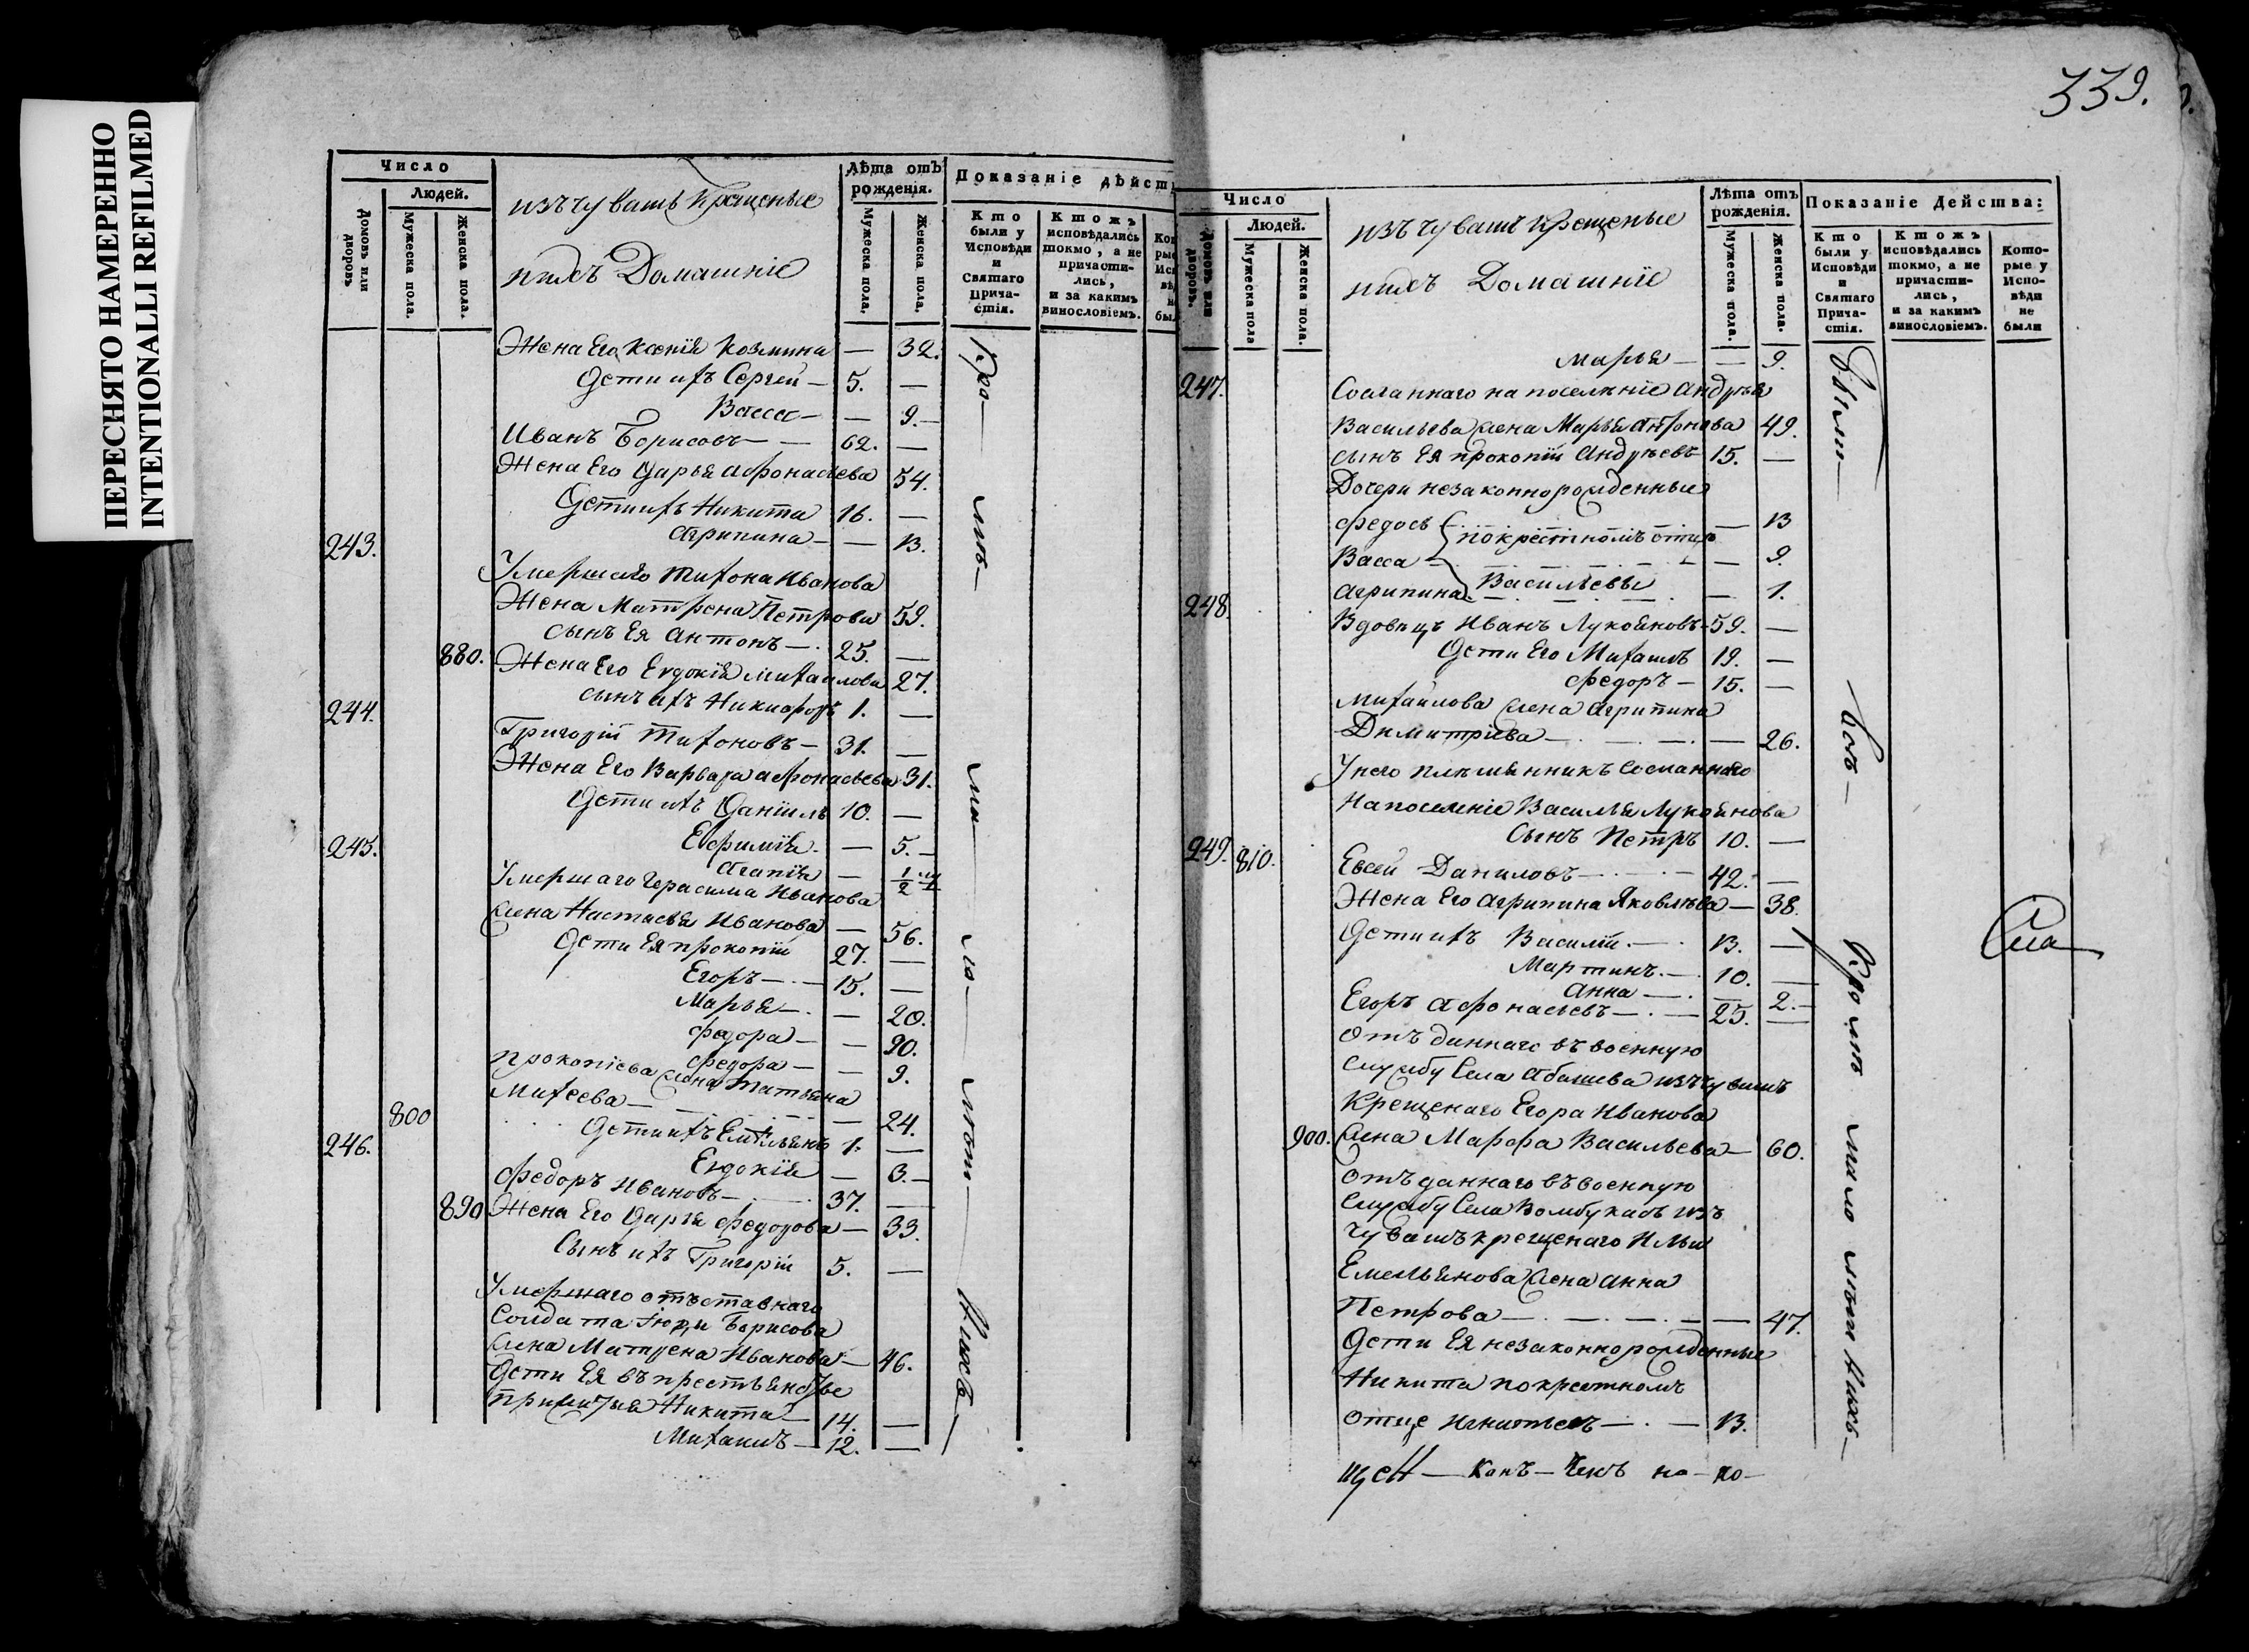 ПЕРЕСНЯТО НАМЕРЕННО
INTENTIONALLI REFILMED
Число
Людей.
Домовъ или дворовъ.
Мужеска пола.
Женска пола.
изъ чувашъ крещеные
и ихъ Домашнїе
Лѣта отъ рожденїя.
Мужеска пола.
Женска пола.
Показанїе дѣйст
Кто были у Исповѣди и Святаго Прича-стїя.
Ктожъ исповѣдались токмо, а не причасти-лись, и за какимъ винословїемъ.
Жена Его Ксенїя Козмина — 32.
Дети ихъ Сергей — 5. —
Васса — — 9. —
Иванъ Борисовъ — — 62. —
Жена Его Дарья Афонасьева 54.
Дети ихъ Никита 16. —
Агрипина — — 13.
243.
Умершаго Тихона Иванова
Жена Матрена Петрова 59.
сынъ Ея Антонъ — 25. —
880. Жена Его Евдокїя Михаилова 27.
сынъ ихъ Никифоръ 1. —
244.
Григорїй Тихоновъ — 31. —
Жена Его Варвара Афонасьева 31.
Дети ихъ Данїилъ 10. —
Евфимїя. — 5. —
Агапїя — 1/2
245.
Умершаго Герасима Иванова
жена Настасья Иванова — 56.
Дети Ея Прокопїй 27. —
Егоръ — 15. —
Марья — — 20.
Федора — — 20.
Федора — — 9.
Прокопїева жена Татьяна
Михеева — — 24.
800 Дети ихъ Емельянъ 1. —
Евдокїя — 3. —
246.
Федоръ Ивановъ — 37. —
890 Жена Его Дарья Федорова — 33.
Сынъ ихъ Григорїй 5. —
Умершаго отъставнаго
Солдата Борисова
жена Матрена Иванова — 46.
Дети Ея въ крестьянстве
прижитыя Никита — 14. —
Михаилъ — 12. —
339.
Число
Людей.
Домовъ или дворовъ.
Мужеска пола
Женска пола.
изъ чувашъ крещеные
и ихъ Домашнїе
Лѣта отъ рожденїя.
Мужеска пола.
Женска пола.
Показанїе Действа:
Кто были у Исповѣди и Святаго Прича-стїя.
Ктожъ исповѣдались токмо, а не причасти-лись, и за какимъ винословїемъ.
Кото-рые у Испо-вѣди не были
Марья — — 9.
247.
Сосланнаго на поселенїе Андрея
Васильева жена Марья Антонова 49.
сынъ Ея Прокопїй Андреевъ 15. —
Дочери незаконнорожденныя
Федось по крестномъ отце — 13
Васса — — 9.
Агрипина Васильевы — 1.
248.
Вдовецъ Иванъ Лукояновъ — 59. —
Дети Его Михаилъ 19. —
Федоръ — 15. —
Михаилова жена Агрипина
Димитрїева — — — 26.
У него племянникъ Сосланнаго
На поселенїе Василья Лукоянова
Сынъ Петръ 10. —
249. 810.
Евсей Даниловъ — — 42. —
Жена Его Агрипина Яковлева — 38.
Дети ихъ Василїй — 13. —
Мартинъ — 10. —
Анна — — 2. —
Егоръ Афонасьевъ — — 25. —
Отъданнаго въ военную
службу Села Абашева изъ чувашъ
крещенаго Егора Иванова
900. жена Марфа Васильева — 60.
Отъданнаго въ военную
Службу Села изъ
Чувашъ крещенаго Ильи
Емельянова жена Анна
Петрова — — — — 47.
Дети Ея незаконнорожденные
Никита по крестномъ
отце Игнатьевъ — — 13.